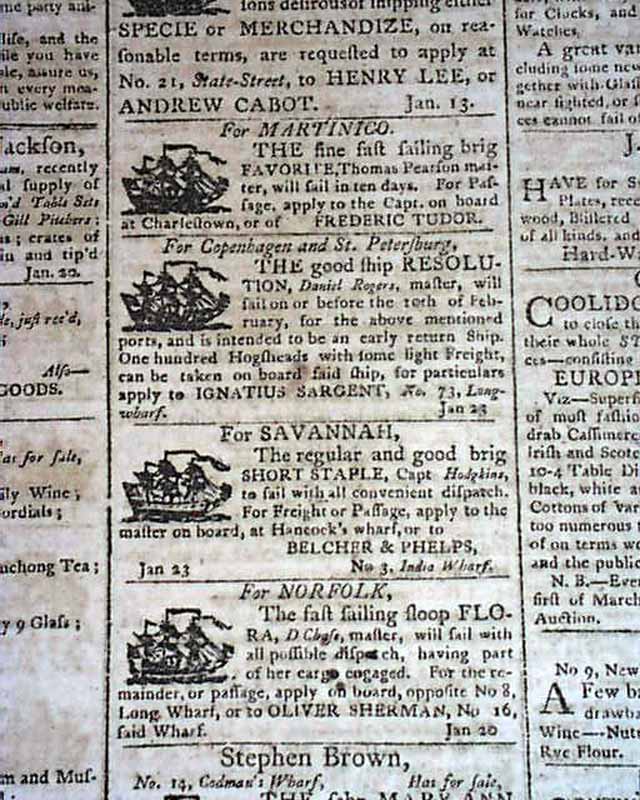 me party ani-
life, and the
ile you have
assure us,
n every mea-
ublic welfare.
Jackson,
recently
al supply of
Table Sets
Gill Pitchers;
crates of
in and tip'd
Jan. 20.
just rec'd,
Also—
GOODS.
for sale,
ily Wine;
ordials;
uchong Tea;
y 9 Glass;
m and Mus-
ions desirous of shipping either
SPECIE or MERCHANDIZE, on rea-
sonable terms, are requested to apply at
No. 21, State-Street, to HENRY LEE, or
ANDREW CABOT. Jan. 13.
For MARTINICO.
THE fine fast sailing brig
FAVORITE, Thomas Pearson mas-
ter, will sail in ten days. For Pas-
sage, apply to the Capt. on board
at Charlestown, or of FREDERIC TUDOR.
For Copenhagen and St. Petersburg,
THE good ship RESOLU-
TION, Daniel Rogers, master, will
sail on or before the 10th of Feb-
ruary, for the above mentioned
ports, and is intended to be an early return Ship.
One hundred Hogsheads with some light Freight,
can be taken on board said ship, for particulars
apply to IGNATIUS SARGENT, No. 73, Long-
wharf. Jan 23
For SAVANNAH,
The regular and good brig
SHORT STAPLE, Capt Hodgkins,
to sail with all convenient dispatch.
For Freight or Passage, apply to the
master on board, at Hancock's wharf, or to
BELCHER & PHELPS,
Jan 23 No 3, India Wharf.
For NORFOLK,
The fast sailing sloop FLO-
RA, D Chase, master, will sail with
all possible dispatch, having part
of her cargo engaged. For the re-
mainder, or passage, apply on board, opposite No 8,
Long Wharf, or to OLIVER SHERMAN, No 16,
said Wharf. Jan 20
Stephen Brown,
No. 14, Codman's Wharf, Has for sale,
THE MARY ANN
for Clocks, and
Watches.
A great var
cluding some new
gether with Glass
near sighted, or
ces cannot fail of
J.
HAVE for S
Plates, rece
wood, Blistered
of all kinds, and
Hard-Wa
COOLIDG
to close th
their whole ST
ces—consisting
EUROPE
Viz—Superfi
of most fashio
drab Cassimere
Irish and Scotc
10-4 Table Di
black, white a
Cottons of var
too numerous t
of on terms wo
and the public
N. B.—Ever
first of March
Auction.
No 9, New
A Few b
drawba
Wine—Nut
Rye Flour.